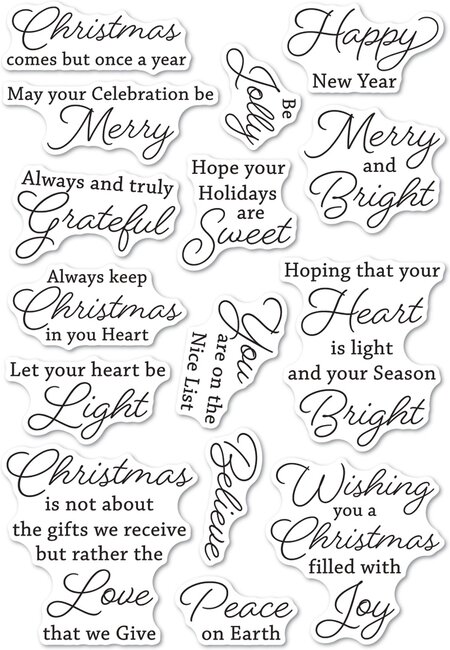 Christmas
comes but once a year
Happy
New Year
Be
Jolly
May your Celebration be
Merry
Merry
and
Bright
Always and truly
Grateful
Hope your
Holidays
are
Sweet
Always keep
Christmas
in you Heart
Hoping that your
Heart
is light
and your Season
Bright
You
are on the
Nice List
Let your heart be
Light
Believe
Christmas
is not about
the gifts we receive
but rather the
Love
that we Give
Wishing
you a
Christmas
filled with
Joy
Peace
on Earth